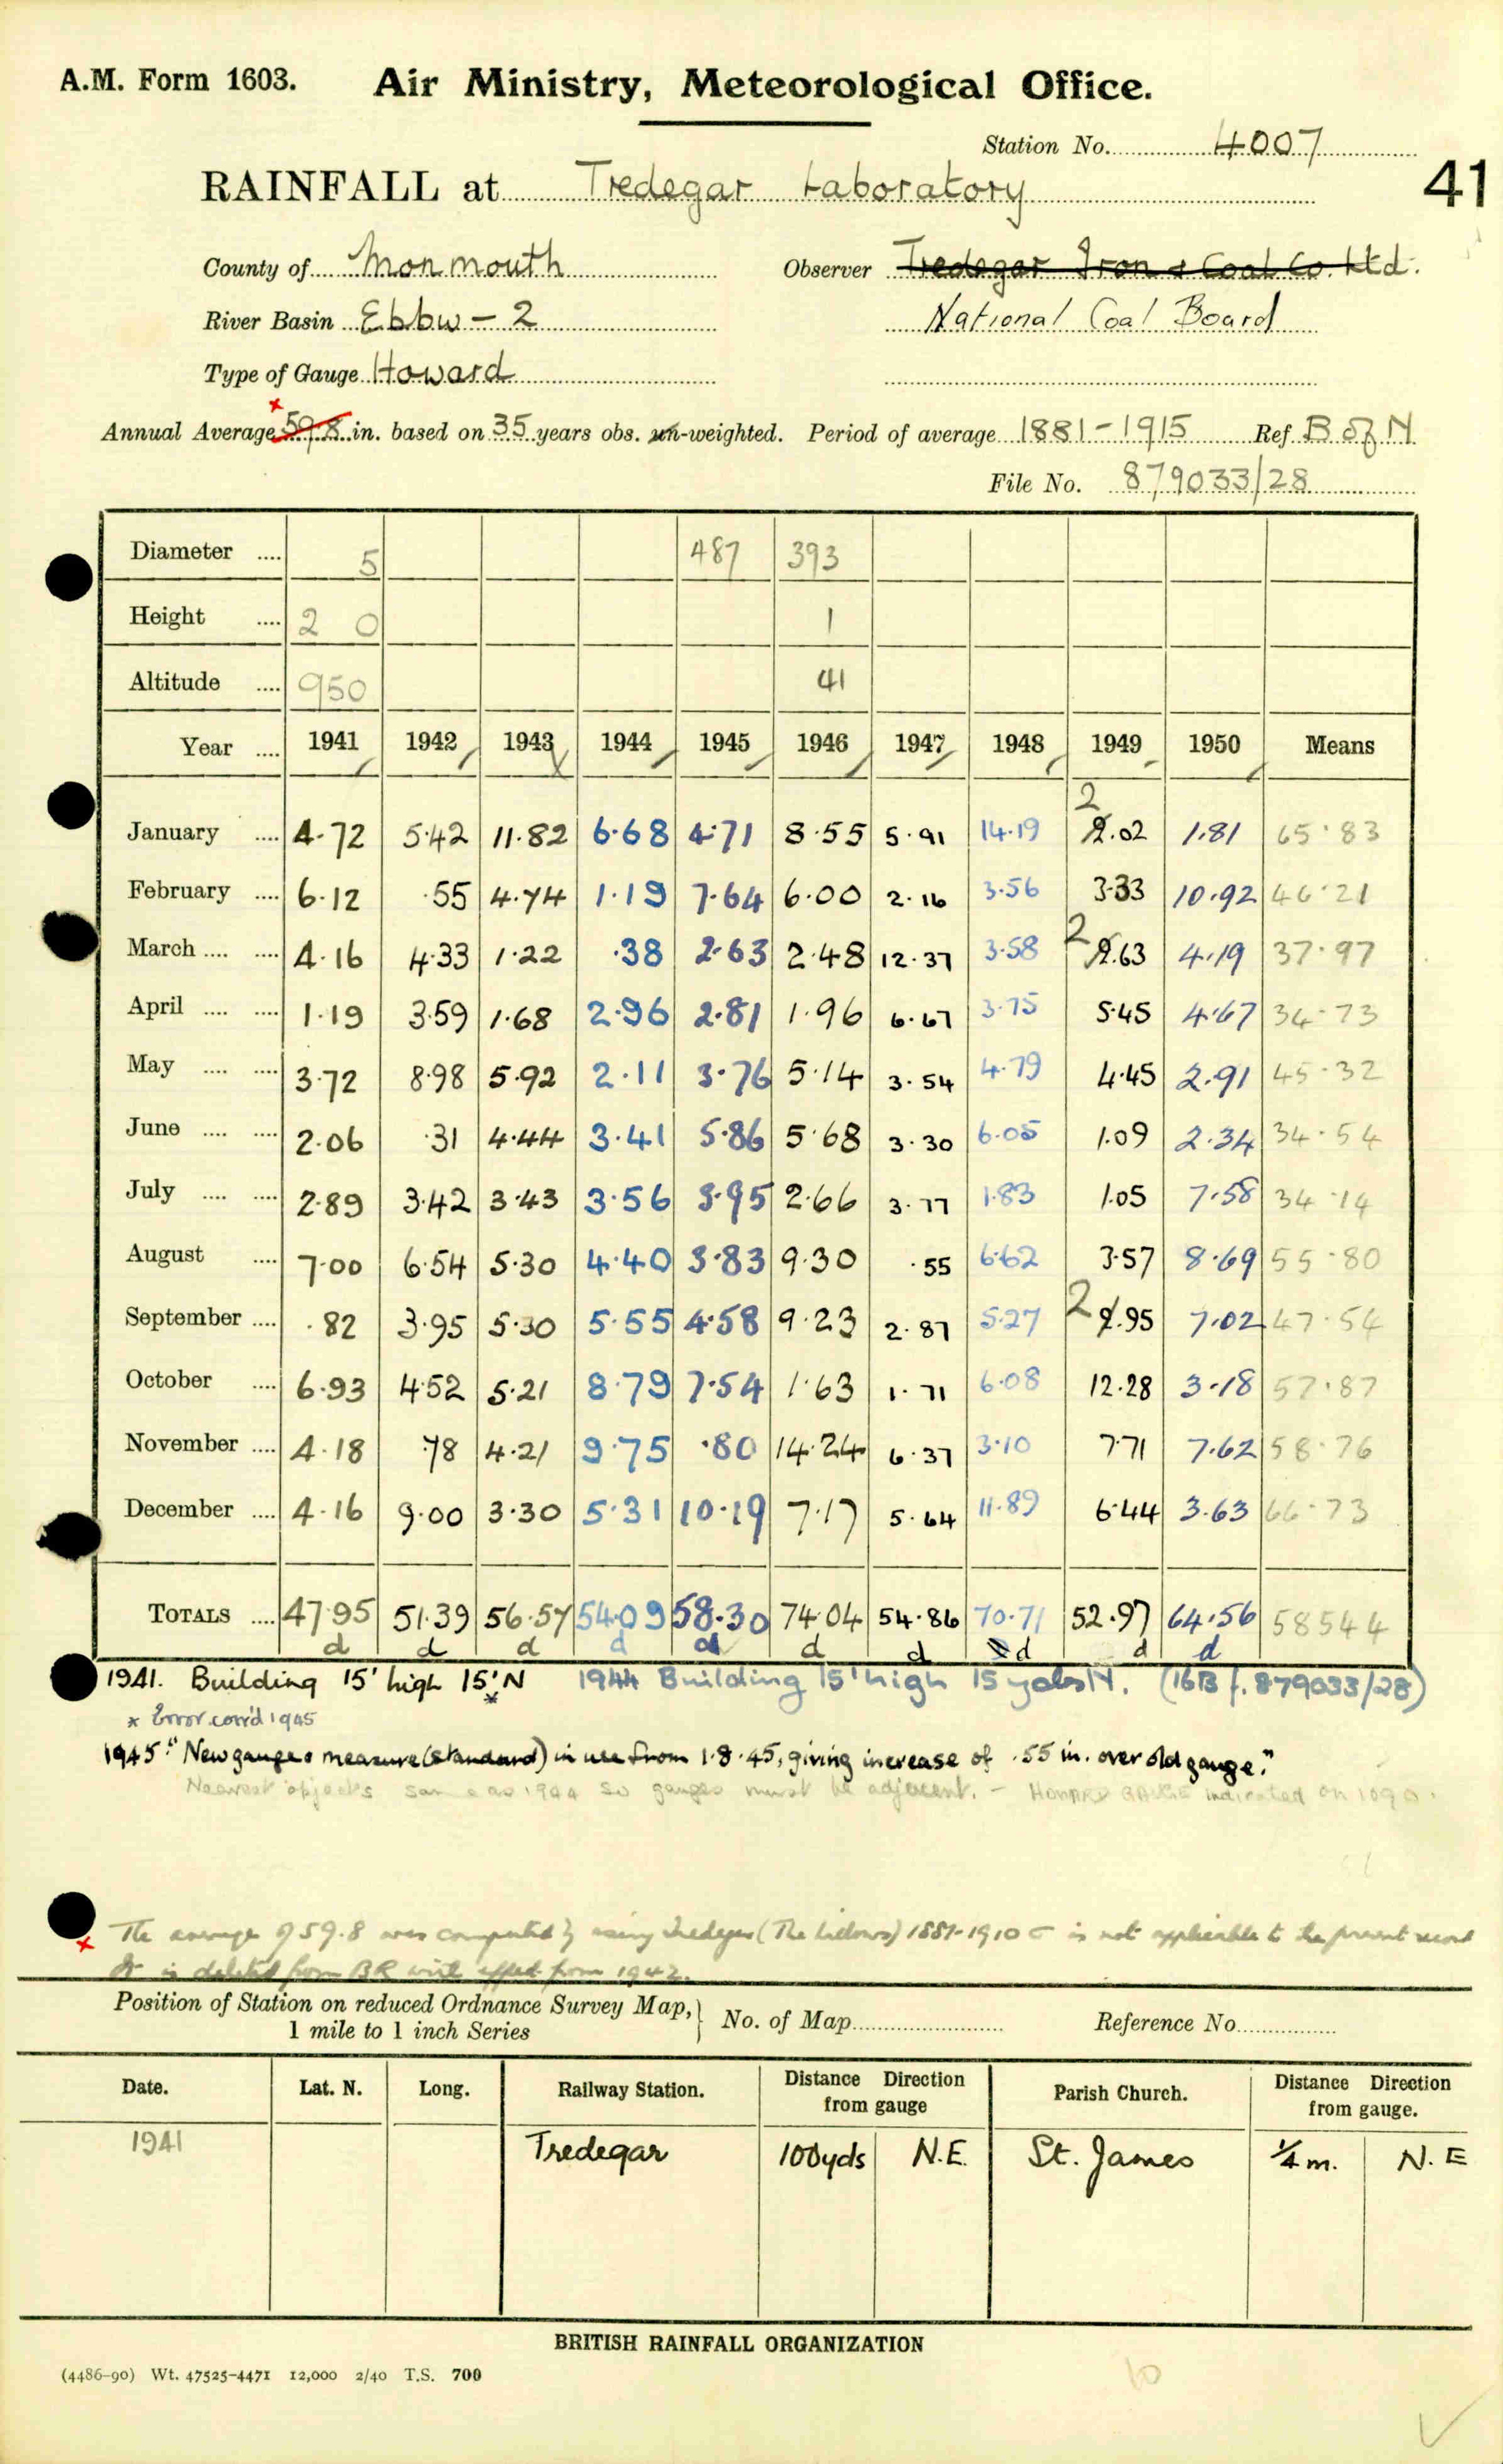 A.M. Form 1603. Air Ministry, Meteorological Office.
Station No. 4007
41
RAINFALL at Tredegar Laboratory
County of Monmouth Observer Tredegar Iron & Coal Co. Ltd.
River Basin Ebbw - 2 National Coal Board
Type of Gauge Howard
x
Annual Average 59.8 in. based on 35 years obs. un-weighted. Period of average 1881-1915 Ref. B of N
File No. 879033/28
Diameter .... 5 487 393
Height .... 2 0 1
Altitude .... 950 41
Year .... 1941 1942 1943 1944 1945 1946 1947 1948 1949 1950 Means
January .... 4.72 5.42 11.82 6.68 4.71 8.55 5.91 14.19 2.02 1.81 65.83
February .... 6.12 .55 4.74 1.19 7.64 6.00 2.16 3.56 3.33 10.92 46.21
March .... .... 4.16 4.33 1.22 .38 2.63 2.48 12.37 3.58 2.63 4.19 37.97
April .... .... 1.19 3.59 1.68 2.96 2.81 1.96 6.67 3.75 5.45 4.67 34.73
May .... .... 3.72 8.98 5.92 2.11 3.76 5.14 3.54 4.79 4.45 2.91 45.32
June .... .... 2.06 .31 4.44 3.41 5.86 5.68 3.30 6.05 1.09 2.34 34.54
July .... .... 2.89 3.42 3.43 3.56 3.95 2.66 3.77 1.83 1.05 7.58 34.14
August .... 7.00 6.54 5.30 4.40 3.83 9.30 .55 6.62 3.57 8.69 55.80
September .... .82 3.95 5.30 5.55 4.58 9.23 2.87 5.27 2.95 7.02 47.54
October .... 6.93 4.52 5.21 8.79 7.54 1.63 1.71 6.08 12.28 3.18 57.87
November .... 4.18 .78 4.21 9.75 .80 14.24 6.37 3.10 7.71 7.62 58.76
December .... 4.16 9.00 3.30 5.31 10.19 7.17 5.64 11.89 6.44 3.63 66.73
TOTALS .... 47.95 51.39 56.57 54.09 58.30 74.04 54.86 70.71 52.97 64.56 58544
d d d d d d d d d d
1941. Building 15' high 15' N 1944 Building 15' high 15 yds N. (16B f. 879033/28)
x Error corr'd 1945
1945 "New gauge & measure (standard) in use from 1.8.45, giving increase of .55 in. over old gauge."
Nearest objects same as 1944 so gauges must be adjacent. - HOWARD GAUGE indicated on 1090.
x The average of 59.8 was computed by using Tredegar (The ) 1881-1910 & is not applicable to the present record
It is deleted from BR with effect from 1942.
Position of Station on reduced Ordnance Survey Map, } No. of Map Reference No.
1 mile to 1 inch Series
Date. Lat. N. Long. Railway Station. Distance Direction from gauge Parish Church. Distance Direction from gauge.
1941 Tredegar 100yds N.E. St. James ¼ m. N. E
BRITISH RAINFALL ORGANIZATION
(4486-90) Wt. 47525-4471 12,000 2/40 T.S. 700
10